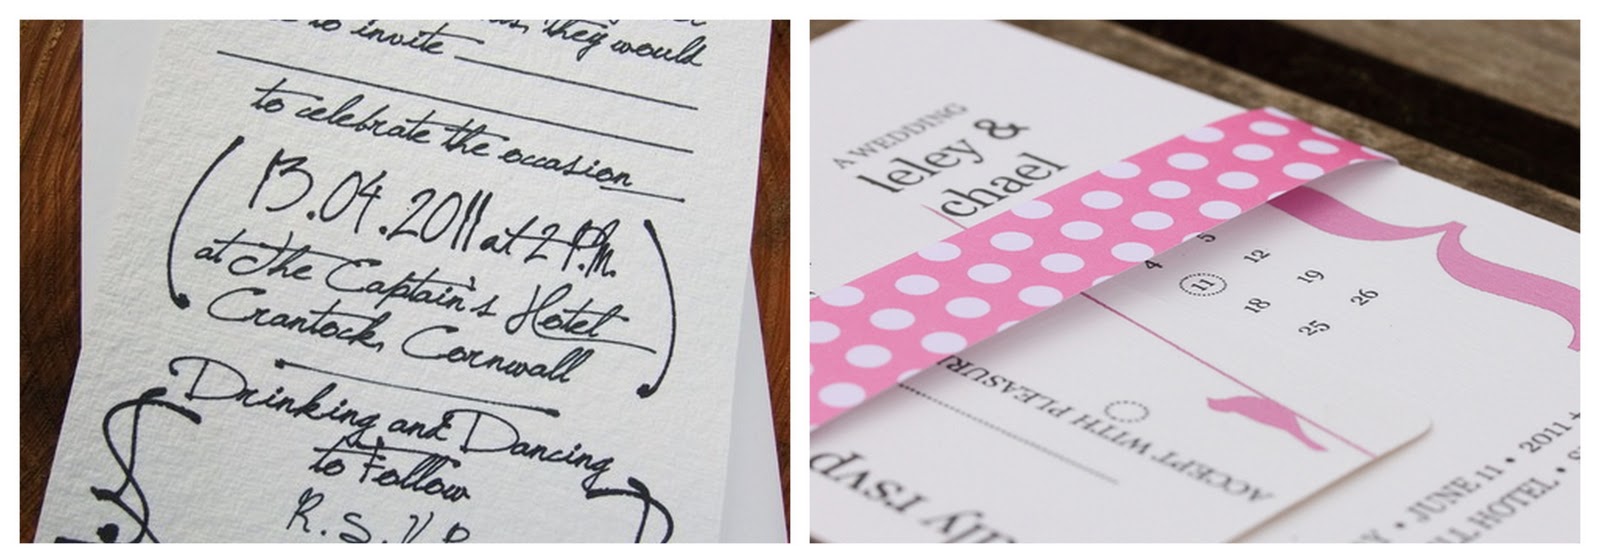 they would
to invite
to celebrate the occasion
13.04.2011 at 2 P.M.
at The Captain's Hotel
Crantock, Cornwall
Drinking and Dancing
to Follow
R.S.V.P
A WEDDING
leley &
chael
5
4 11 18 25
12 19 26
ACCEPT WITH PLEASURE
rsvp
JUNE 11 • 2011
HOTEL •